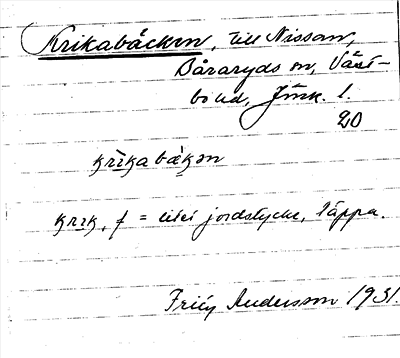 Krikabäcken, till Nissan,
Båraryds sn, Väst-
bo hd, Jönk. l.
20
krìkabàkən
krɪk, f = litet jordstycke, täppa.
Andersson 1931.